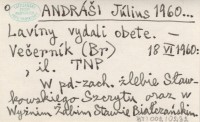 ANDRÁŠI Július 1960...
Lavíny vydali obete. -
Večerník (Br) 18 VI 1960:
, il. TNP
W pd-zach. żlebie Sław-
kowskiego Szczytu oraz w
Wyżnim Żabim Stawie Białczańskim